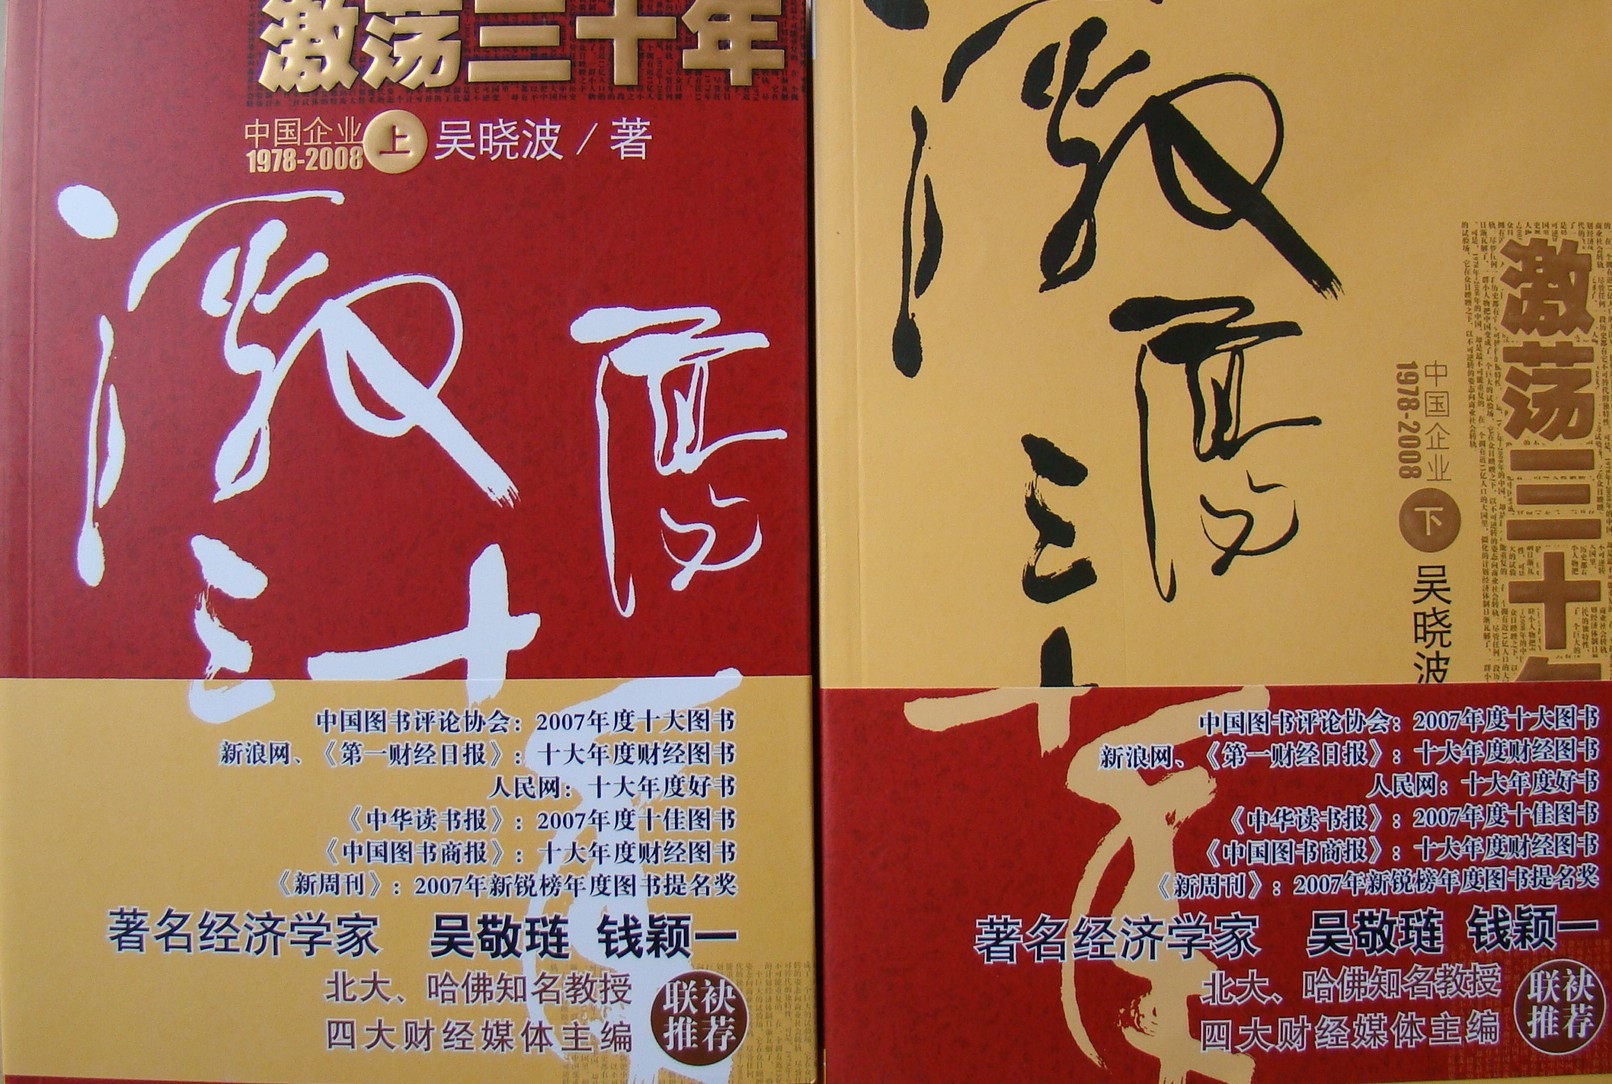 激荡三十年
中国企业
1978-2008
上
吴晓波/著
激荡
三十
年
中国图书评论协会：2007年度十大图书
新浪网、《第一财经日报》：十大年度财经图书
人民网：十大年度好书
《中华读书报》：2007年度十佳图书
《中国图书商报》：十大年度财经图书
《新周刊》：2007年新锐榜年度图书提名奖
著名经济学家 吴敬琏 钱颖一
北大、哈佛知名教授
四大财经媒体主编
联袂
推荐
激荡
三十
年
激荡三十年
中国企业
1978-2008
下
吴晓波
中国图书评论协会：2007年度十大图书
新浪网、《第一财经日报》：十大年度财经图书
人民网：十大年度好书
《中华读书报》：2007年度十佳图书
《中国图书商报》：十大年度财经图书
《新周刊》：2007年新锐榜年度图书提名奖
著名经济学家 吴敬琏 钱颖一
北大、哈佛知名教授
四大财经媒体主编
联袂
推荐